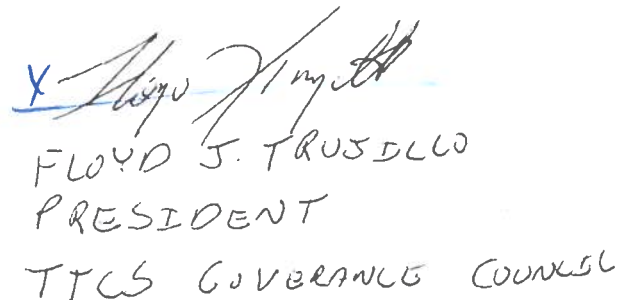 X
FLOYD J. TRUJILLO
PRESIDENT
TTCS GOVERANCE COUNCIL